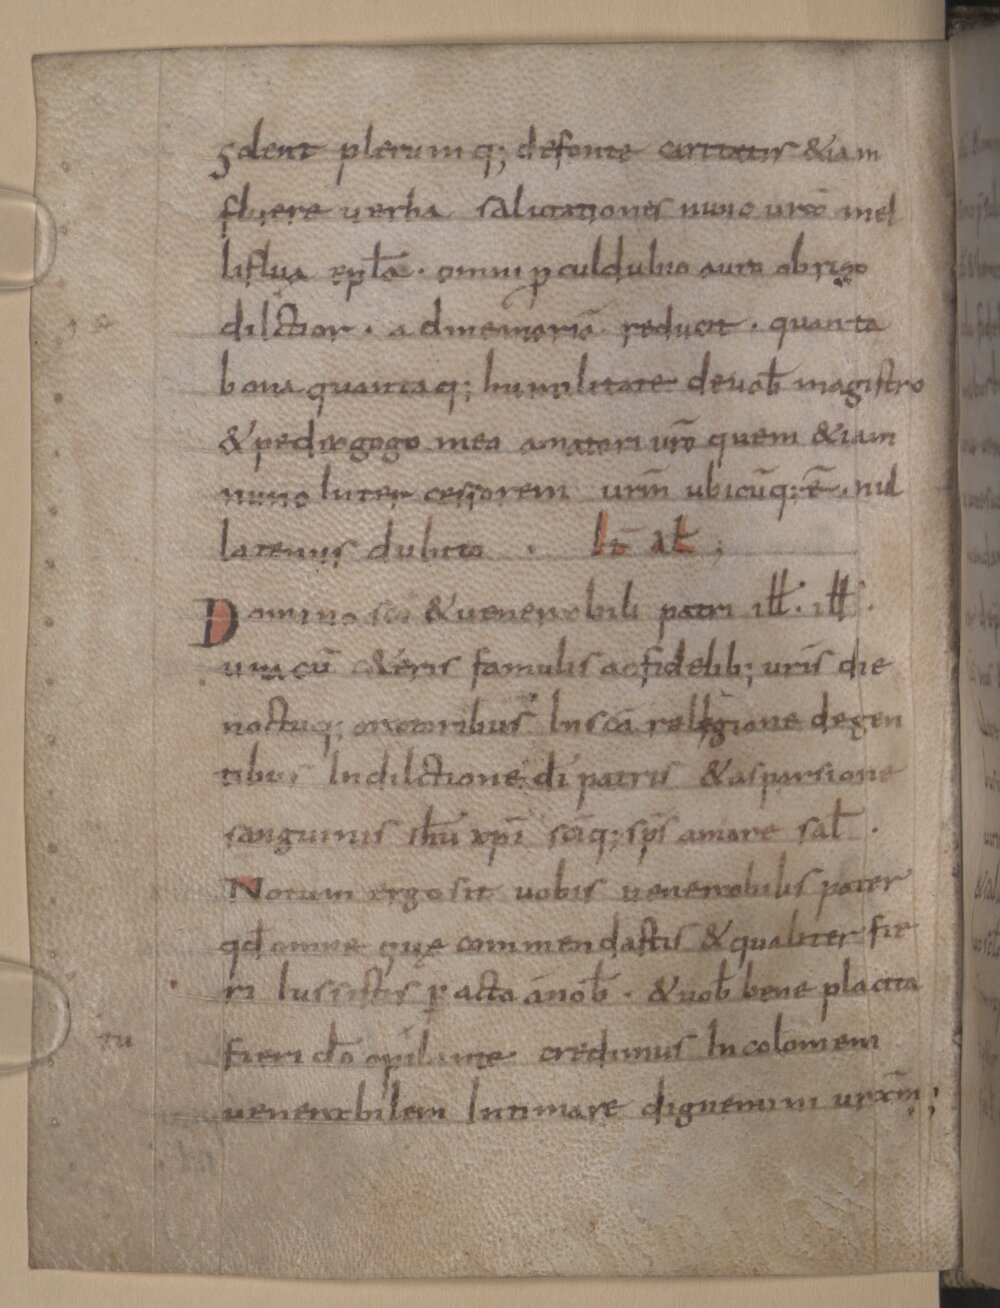 dent plerumq; defonte caritatis &iam
fluere uerba salutationes nunc urō mel
liflua epl̄a · omni ꝑculdubio auro obrigo
dilctior · admemoriā reducit · quanta
bona quantaq; humilitate deuob̄ magistro
&pedagogo meo amatori urō quem &iam
nunc Inter cessorem urm̄ ubicūq; ē · nul
latenus dubito · It̄ al̄ ;
Domino sc̄o &uenerabili patri ill̄ · ill̄ ·
una cū c&eris famulis acfidelib; uris̄ die
noctuq; oratoribus Insc̄a relegione degen
tibus Indilctione dī patris &asparsione
sanguinis ihū xpī sc̄iq; sps̄ amore sal̄ ·
Notum ergo sit uobis uenerabilis pater
qd̄ omne quę commendastis &qualiter fie
ri Iussistis ꝑacta ānob̄ · &uob̄ bene placita
fieri dō opitulante credimus Incolomem
tu
uenerabilem Intimare dignemini urām ;